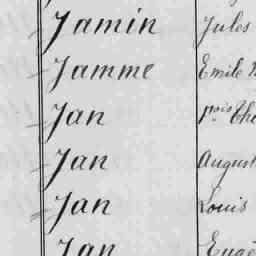 Jamin Jules
Jamme Emile
Jan fçois
Jan August
Jan Louis
Jan Eugè